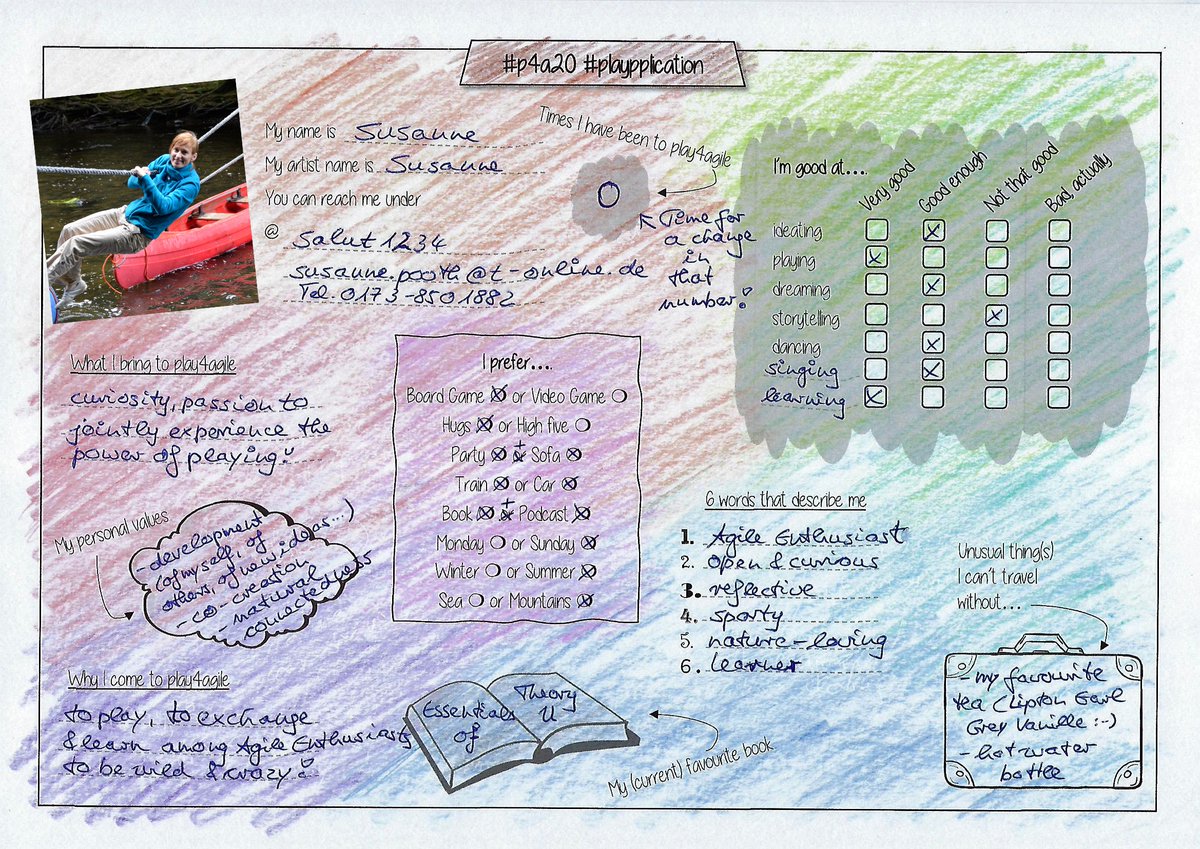 #p4a20 #playpplication
My name is Susanne
My artist name is Susanne
You can reach me under
@ Salut1234
susanne.pooth@t-online.de
Tel. 0173-8501882
Times I have been to play4agile
0
Time for
a change
in
that
number!
I'm good at....
Very good
Good enough
Not that good
Bad, actually
ideating
playing
dreaming
storytelling
dancing
singing
learning
What I bring to play4agile
curiosity, passion to
jointly experience the
power of playing!
I prefer....
Board Game or Video Game
Hugs or High five
Party + Sofa
Train or Car
Book + Podcast
Monday or Sunday
Winter or Summer
Sea or Mountains
My personal values
- development
(of myself, of
others, of new ideas...)
- co-creation
- natural
connectedness
6 words that describe me
1. Agile Enthusiast
2. open & curious
3. reflective
4. sporty
5. nature-loving
6. learner
Unusual thing(s)
I can't travel
without...
- my favourite
tea (Lipton Earl
Grey Vanille :-)
- hot water
bottle
Why I come to play4agile
to play, to exchange
& learn among Agile Enthusiasts
to be wild & crazy!
Essentials
of
Theory
U
My (current) favourite book